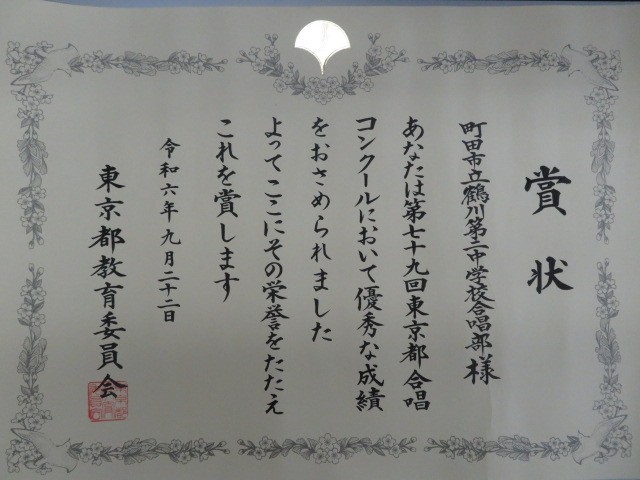 賞状
町田市立鶴川第二中学校合唱部様
あなたは第七十九回東京都合唱
コンクールにおいて優秀な成績
をおさめられました
よってここにその栄誉をたたえ
これを賞します
令和六年九月二十二日
東京都教育委員会